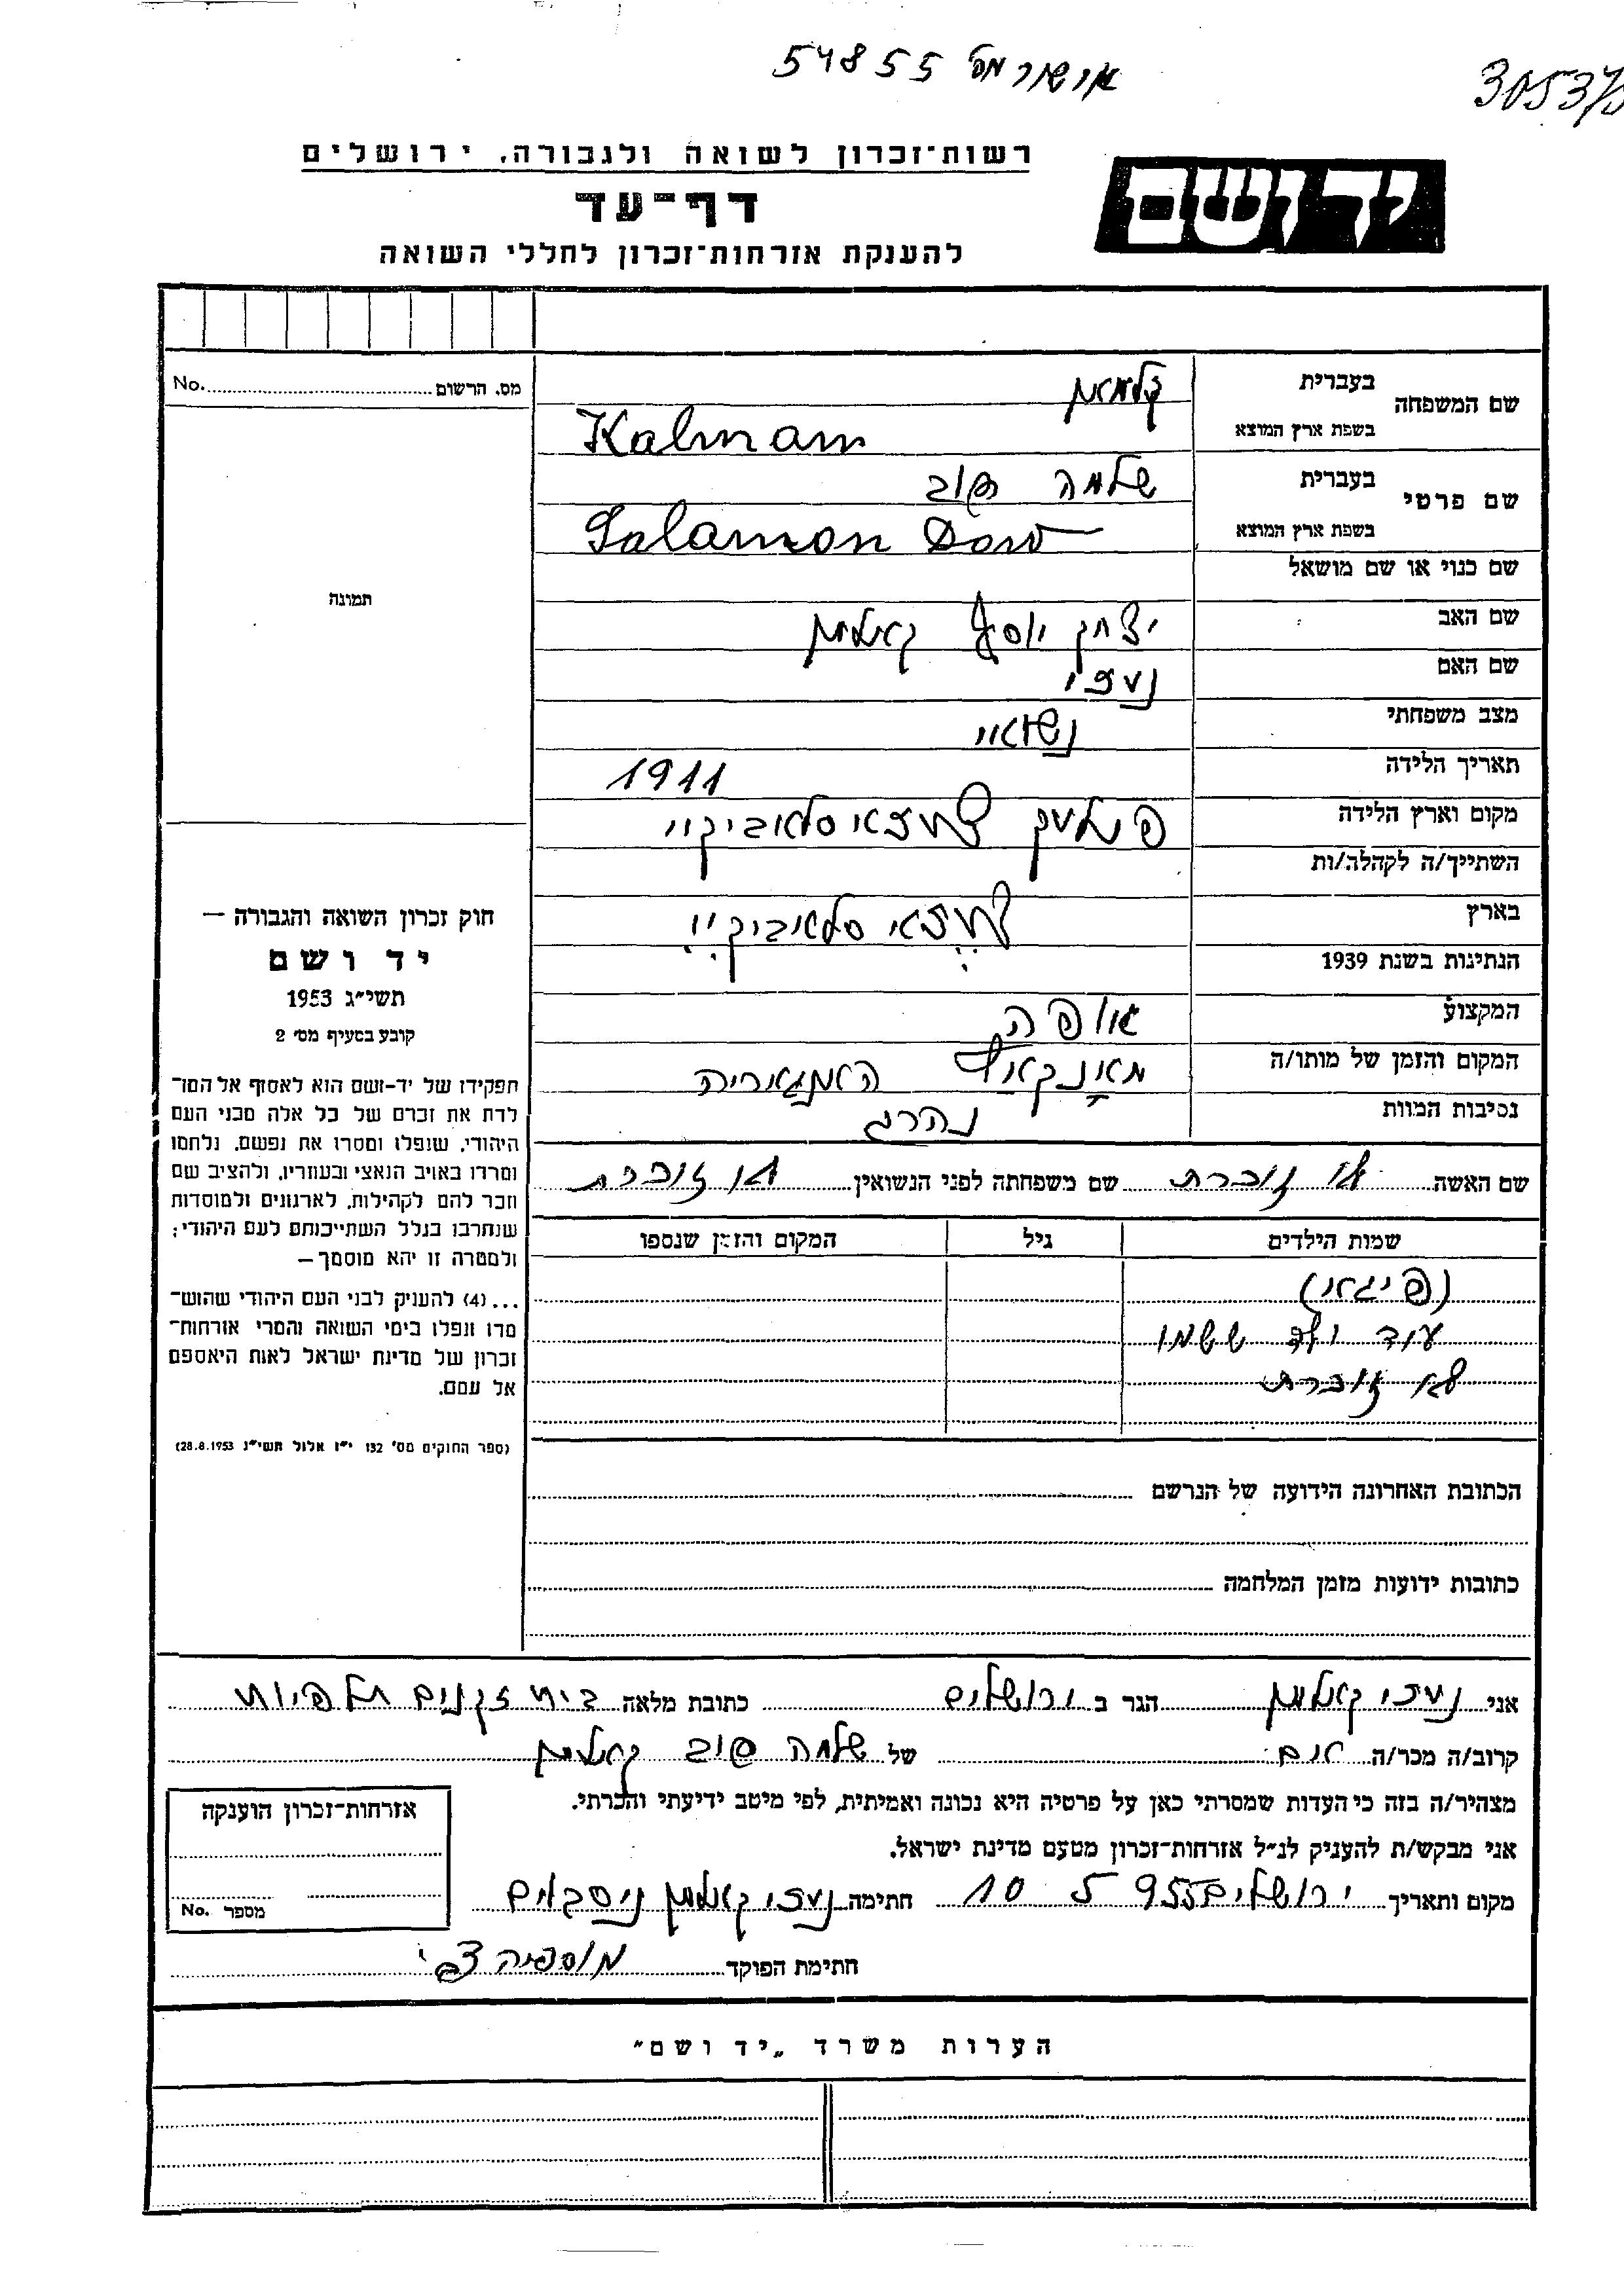 אושור מס 54855
30537/5
רשות־זכרון לשואה ולגבורה, ירושלים
יד ושם
דף־עד
להענקת אזרחות־זכרון לחללי השואה
מס. הרשום No.
תמונה
שם המשפחה
בעברית קלמאן
בשפת ארץ המוצא Kalman
שם פרטי
בעברית שלמה טוב
בשפת ארץ המוצא Salamon
שם כנוי או שם מושאל
שם האב יצחק יוסף קאלמן
שם האם
מצב משפחתי נשואיי
תאריך הלידה 1911
מקום וארץ הלידה
השתייך/ה לקהלה/ות
בארץ
הנתינות בשנת 1939
המקצוע אופה
המקום והזמן של מותו/ה
נסיבות המוות נהרג
שם האשה לא זוכרת שם משפחתה לפני הנשואין לא זוכרת
שמות הילדים גיל המקום והזמן שנספו
(פיגאי)
עוד ולד ששמו
לא זוכרת
הכתובת האחרונה הידועה של הנרשם
כתובות ידועות מזמן המלחמה
חוק זכרון השואה והגבורה —
יד ושם
תשי״ג 1953
קובע בסעיף מס׳ 2
תפקידו של יד-ושם הוא לאסוף אל המו־
לדת את זכרם של כל אלה מבני העם
היהודי, שנפלו ומסרו את נפשם, נלחמו
ומרדו באויב הנאצי ובעוזריו, ולהציב שם
וזכר להם לקהילות, לארגונים ולמוסדות
שנחרבו בגלל השתייכותם לעם היהודי;
ולמטרה זו יהא מוסמך—
...(4) להעניק לבני העם היהודי שהוש־
מדו ונפלו בימי השואה והמרי אזרחות־
זכרון של מדינת ישראל לאות היאספם
אל עמם.
(ספר החוקים מס׳ 132 י״ז אלול תשי״ג 28.8.1953)
אני קאלמן הגר ב ירושלים כתובת מלאה בית זקנים תלפיות
קרוב/ה מכר/ה אם של שלמה טוב קאלמן
מצהיר/ה בזה כי העדות שמסרתי כאן על פרטיה היא נכונה ואמיתית, לפי מיטב ידיעתי והכרתי.
אני מבקש/ת להעניק לנ״ל אזרחות־זכרון מטעם מדינת ישראל.
מקום ותאריך ירושלים 955 5 10 חתימה קאלמן
חתימת הפוקד
אזרחות־זכרון הוענקה
מספר No.
הערות משרד „יד ושם״